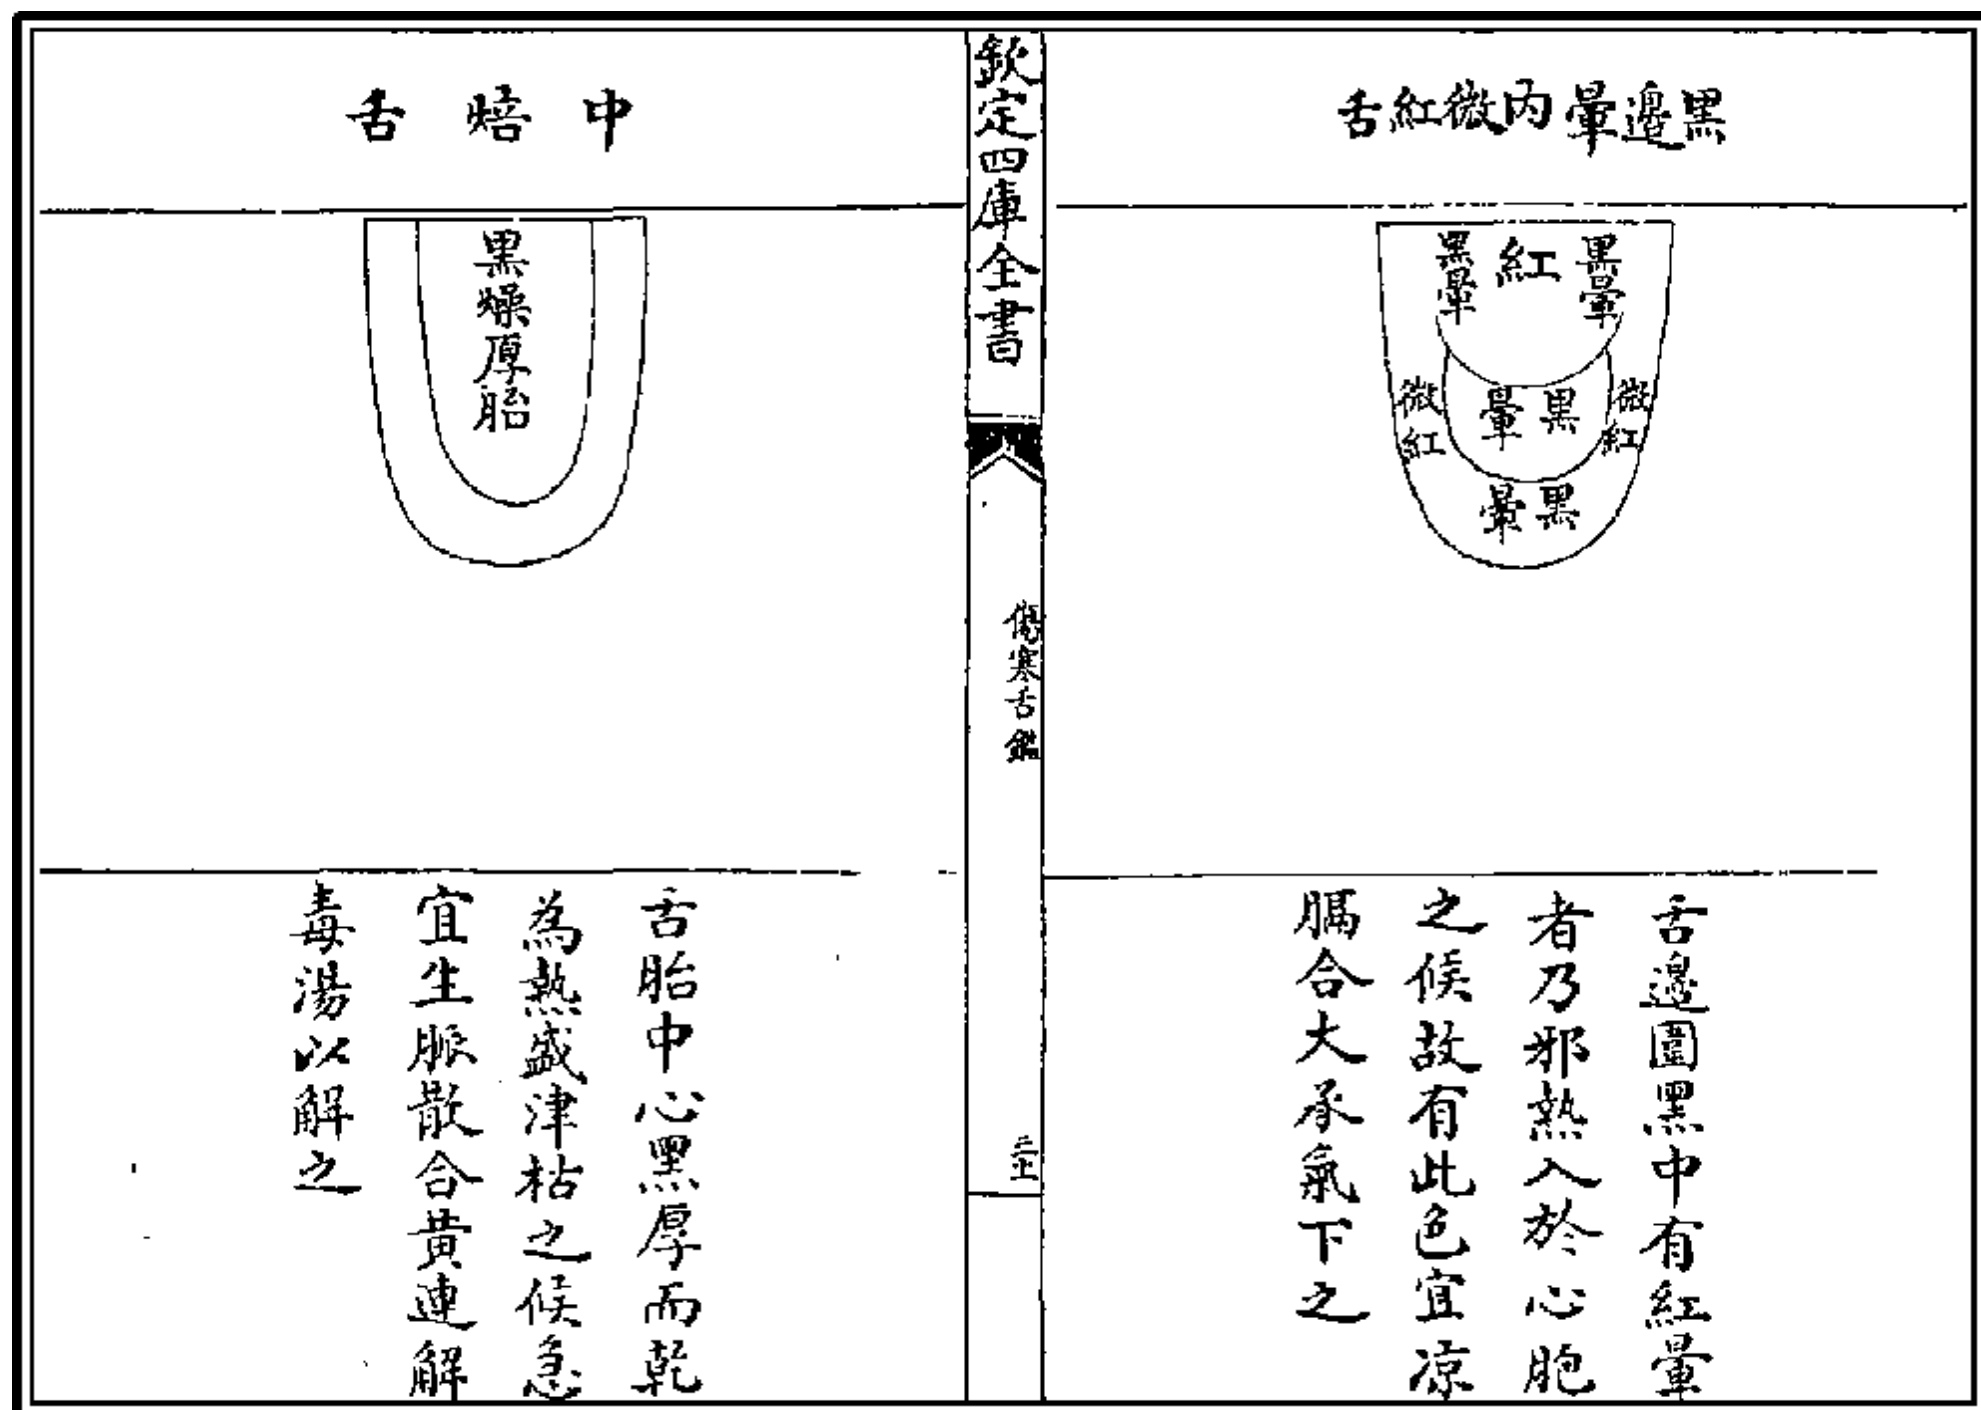 黑邊暈內微紅舌
黑暈
紅
黑暈
微紅
黑暈
微紅
黑暈
舌邊圍黑中有紅暈
者乃邪熱入於心胞
之候故有此色宜凉
膈合大承氣下之
欽定四庫全書
傷寒舌鑑
中焙舌
黑燥厚胎
舌胎中心黑厚而乾
為熱盛津枯之候急
宜生脈散合黄連解
毒湯以解之